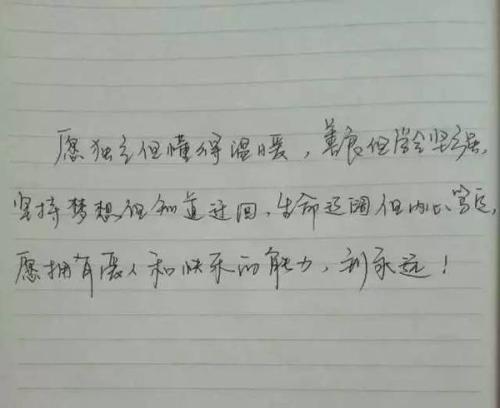 愿独立但懂得温暖,善良但学会坚强,
坚持梦想但知道迂回,生命辽阔但内心笃定,
愿拥有爱人和快乐的能力,到永远!